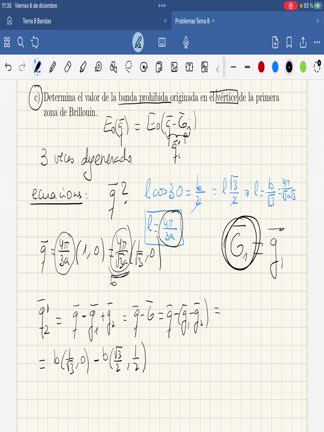 11:35 Viernes 6 de diciembre
83 %
Tema 8 Bandas
Problemas Tema 8
c) Determina el valor de la banda prohibida originada en el vértice de la primera
zona de Brillouin.
E₀(q̄) = E₀(q̄-Ḡₙ)
q̄'
3 veces degenerado
ecuacions: q̄?
l cos30 = b/2 = l √3/2 → l = b/√3 = 4π/√3a√3
l = 4π/3a
q̄ = 4π/3a (1,0) = 4π/√3a (1/√3, 0)
b
Ḡ₁ = ḡ₁
q̄'₂ = q̄ - ḡ₁ + ḡ₂ = q̄ - Ḡ = q̄ - (ḡ₁ - ḡ₂) =
= b(1/√3, 0) - b(√3/2, 1/2)